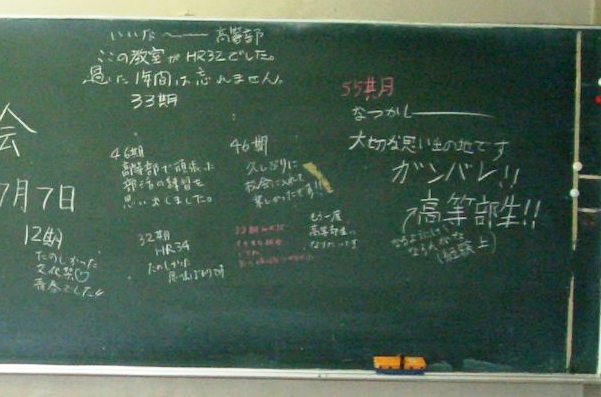 いいな〜 高等部
ここの教室がHR32でした。
過した1年間は忘れません。
33期
会
7月7日
12期
たのしかった
文化祭♡
青春でした
46期
高等部で頑張った
部活の練習を
思い出しました。
32期
HR34
たのしかった
思い出ばかりです
46期
久しぶりに
お会いできて
楽しかったです!!
もう一度
高等部生に
なりたいです
55期
なつかしー
大切な思い出の地です
ガンバレ!!
高等部生!!
(経験上)